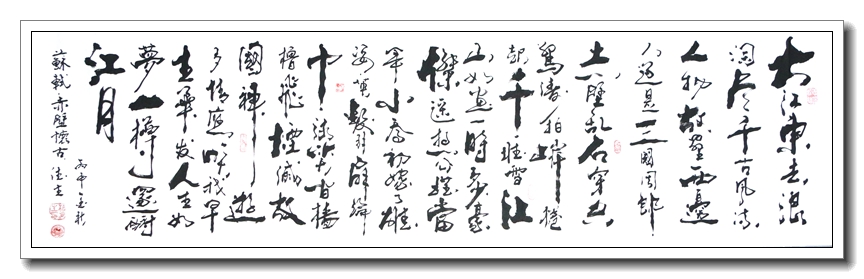 大江東去浪
淘尽千古風流
人物故壘西邊
人道是三國周郎
赤壁乱石穿空
驚濤拍岸捲
起千堆雪江
山如畫一時多少豪
傑遥想公瑾當
年小喬初嫁了雄
姿英發羽扇綸
巾談笑間檣
櫓飛煙滅故
國神遊
多情應笑我早
生華发人生如
夢一樽還酹
江月
蘇軾赤壁懷古
丙申